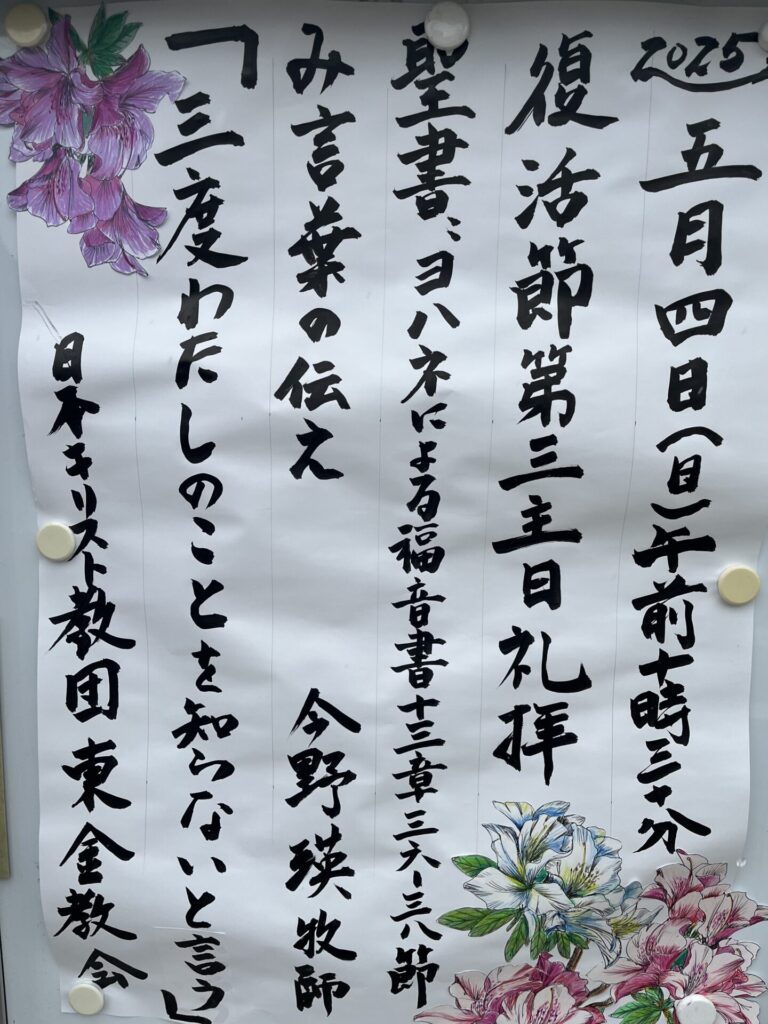 2025
五月四日(日)午前十時三十分
復活節第三主日礼拝
聖書:ヨハネによる福音書十三章三六-三八節
み言葉の伝え 今野瑛牧師
「三度わたしのことを知らないと言う」
日本キリスト教団東金教会